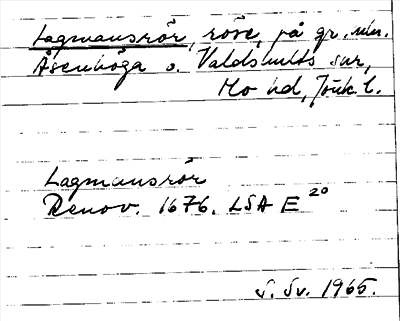 Lagmansrör, röse, på gr. mln.
Åsenhöga o. Valdshults snr,
Mo hd, Jönk. l.
Lagmansrör
Renov. 1676. LSA E 20
S. Sv. 1965.